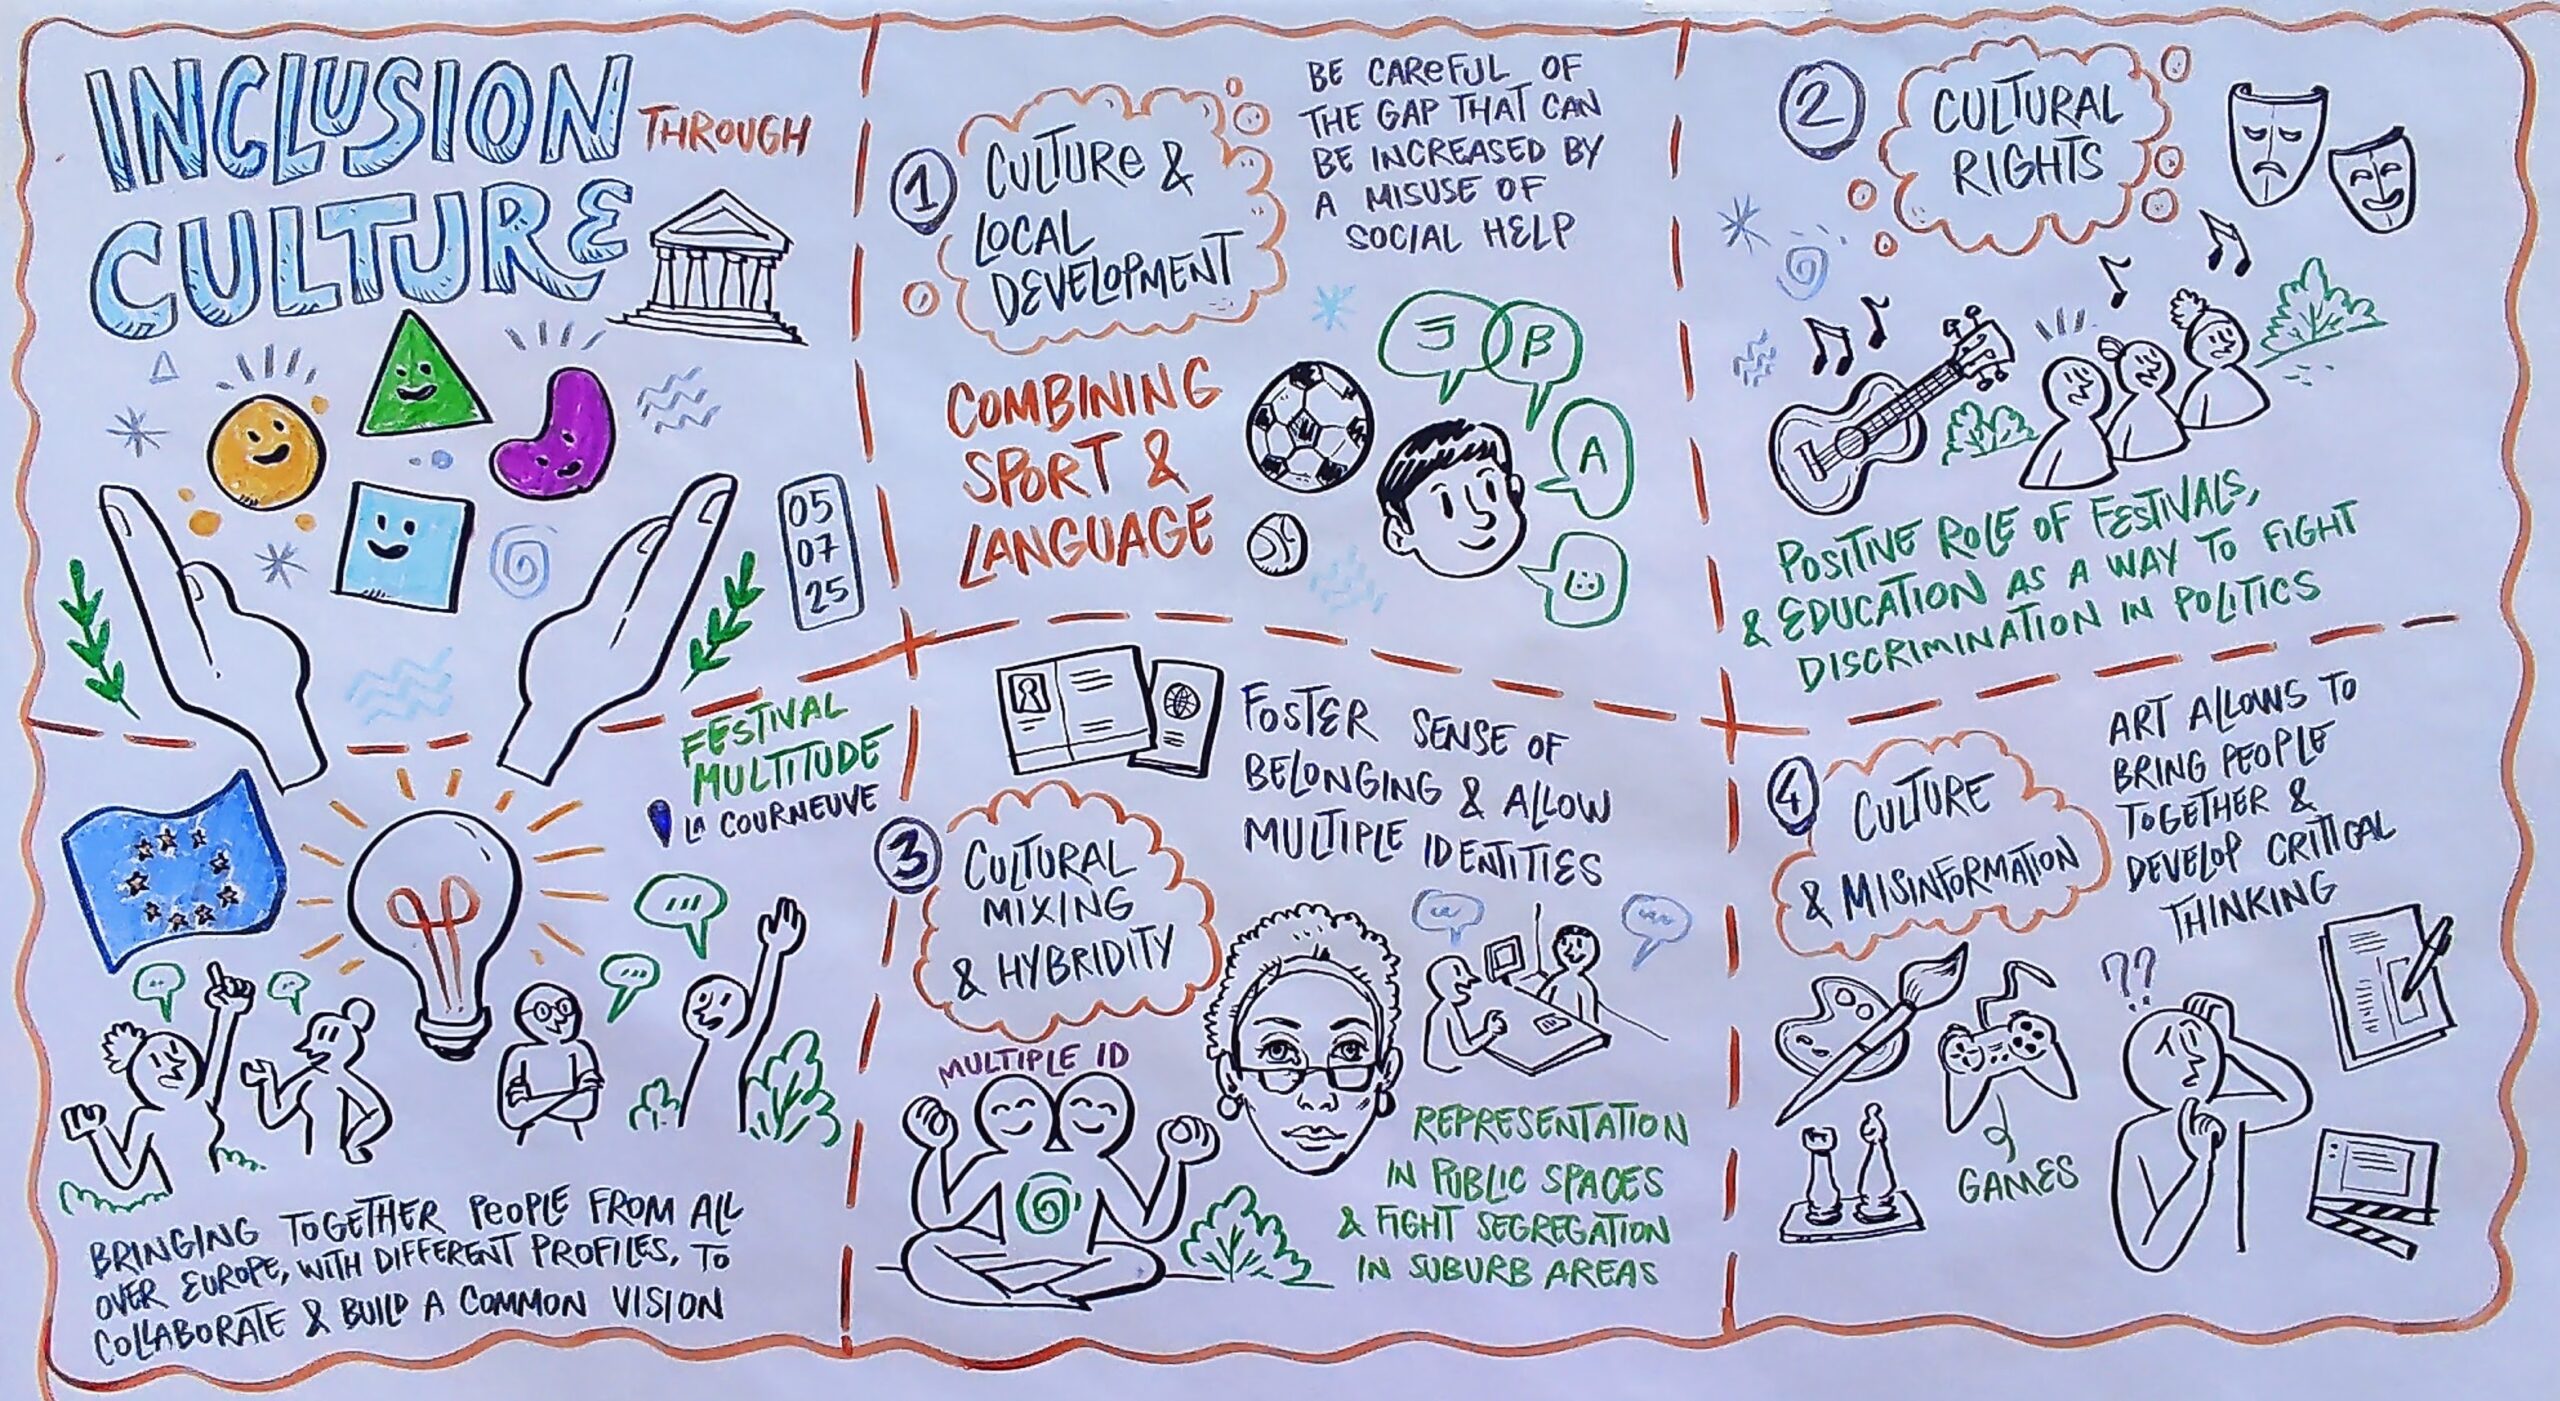 INCLUSION THROUGH
CULTURE
05
07
25
FESTIVAL
MULTITUDE
LA COURNEUVE
BRINGING TOGETHER PEOPLE FROM ALL
OVER EUROPE, WITH DIFFERENT PROFILES, TO
COLLABORATE & BUILD A COMMON VISION
1
CULTURE &
LOCAL
DEVELOPMENT
BE CAREFUL OF
THE GAP THAT CAN
BE INCREASED BY
A MISUSE OF
SOCIAL HELP
COMBINING
SPORT &
LANGUAGE
B
A
2
CULTURAL
RIGHTS
POSITIVE ROLE OF FESTIVALS,
& EDUCATION AS A WAY TO FIGHT
DISCRIMINATION IN POLITICS
3
CULTURAL
MIXING
& HYBRIDITY
FOSTER SENSE OF
BELONGING & ALLOW
MULTIPLE IDENTITIES
MULTIPLE ID
REPRESENTATION
IN PUBLIC SPACES
& FIGHT SEGREGATION
IN SUBURB AREAS
4
CULTURE
& MISINFORMATION
ART ALLOWS TO
BRING PEOPLE
TOGETHER &
DEVELOP CRITICAL
THINKING
??
GAMES